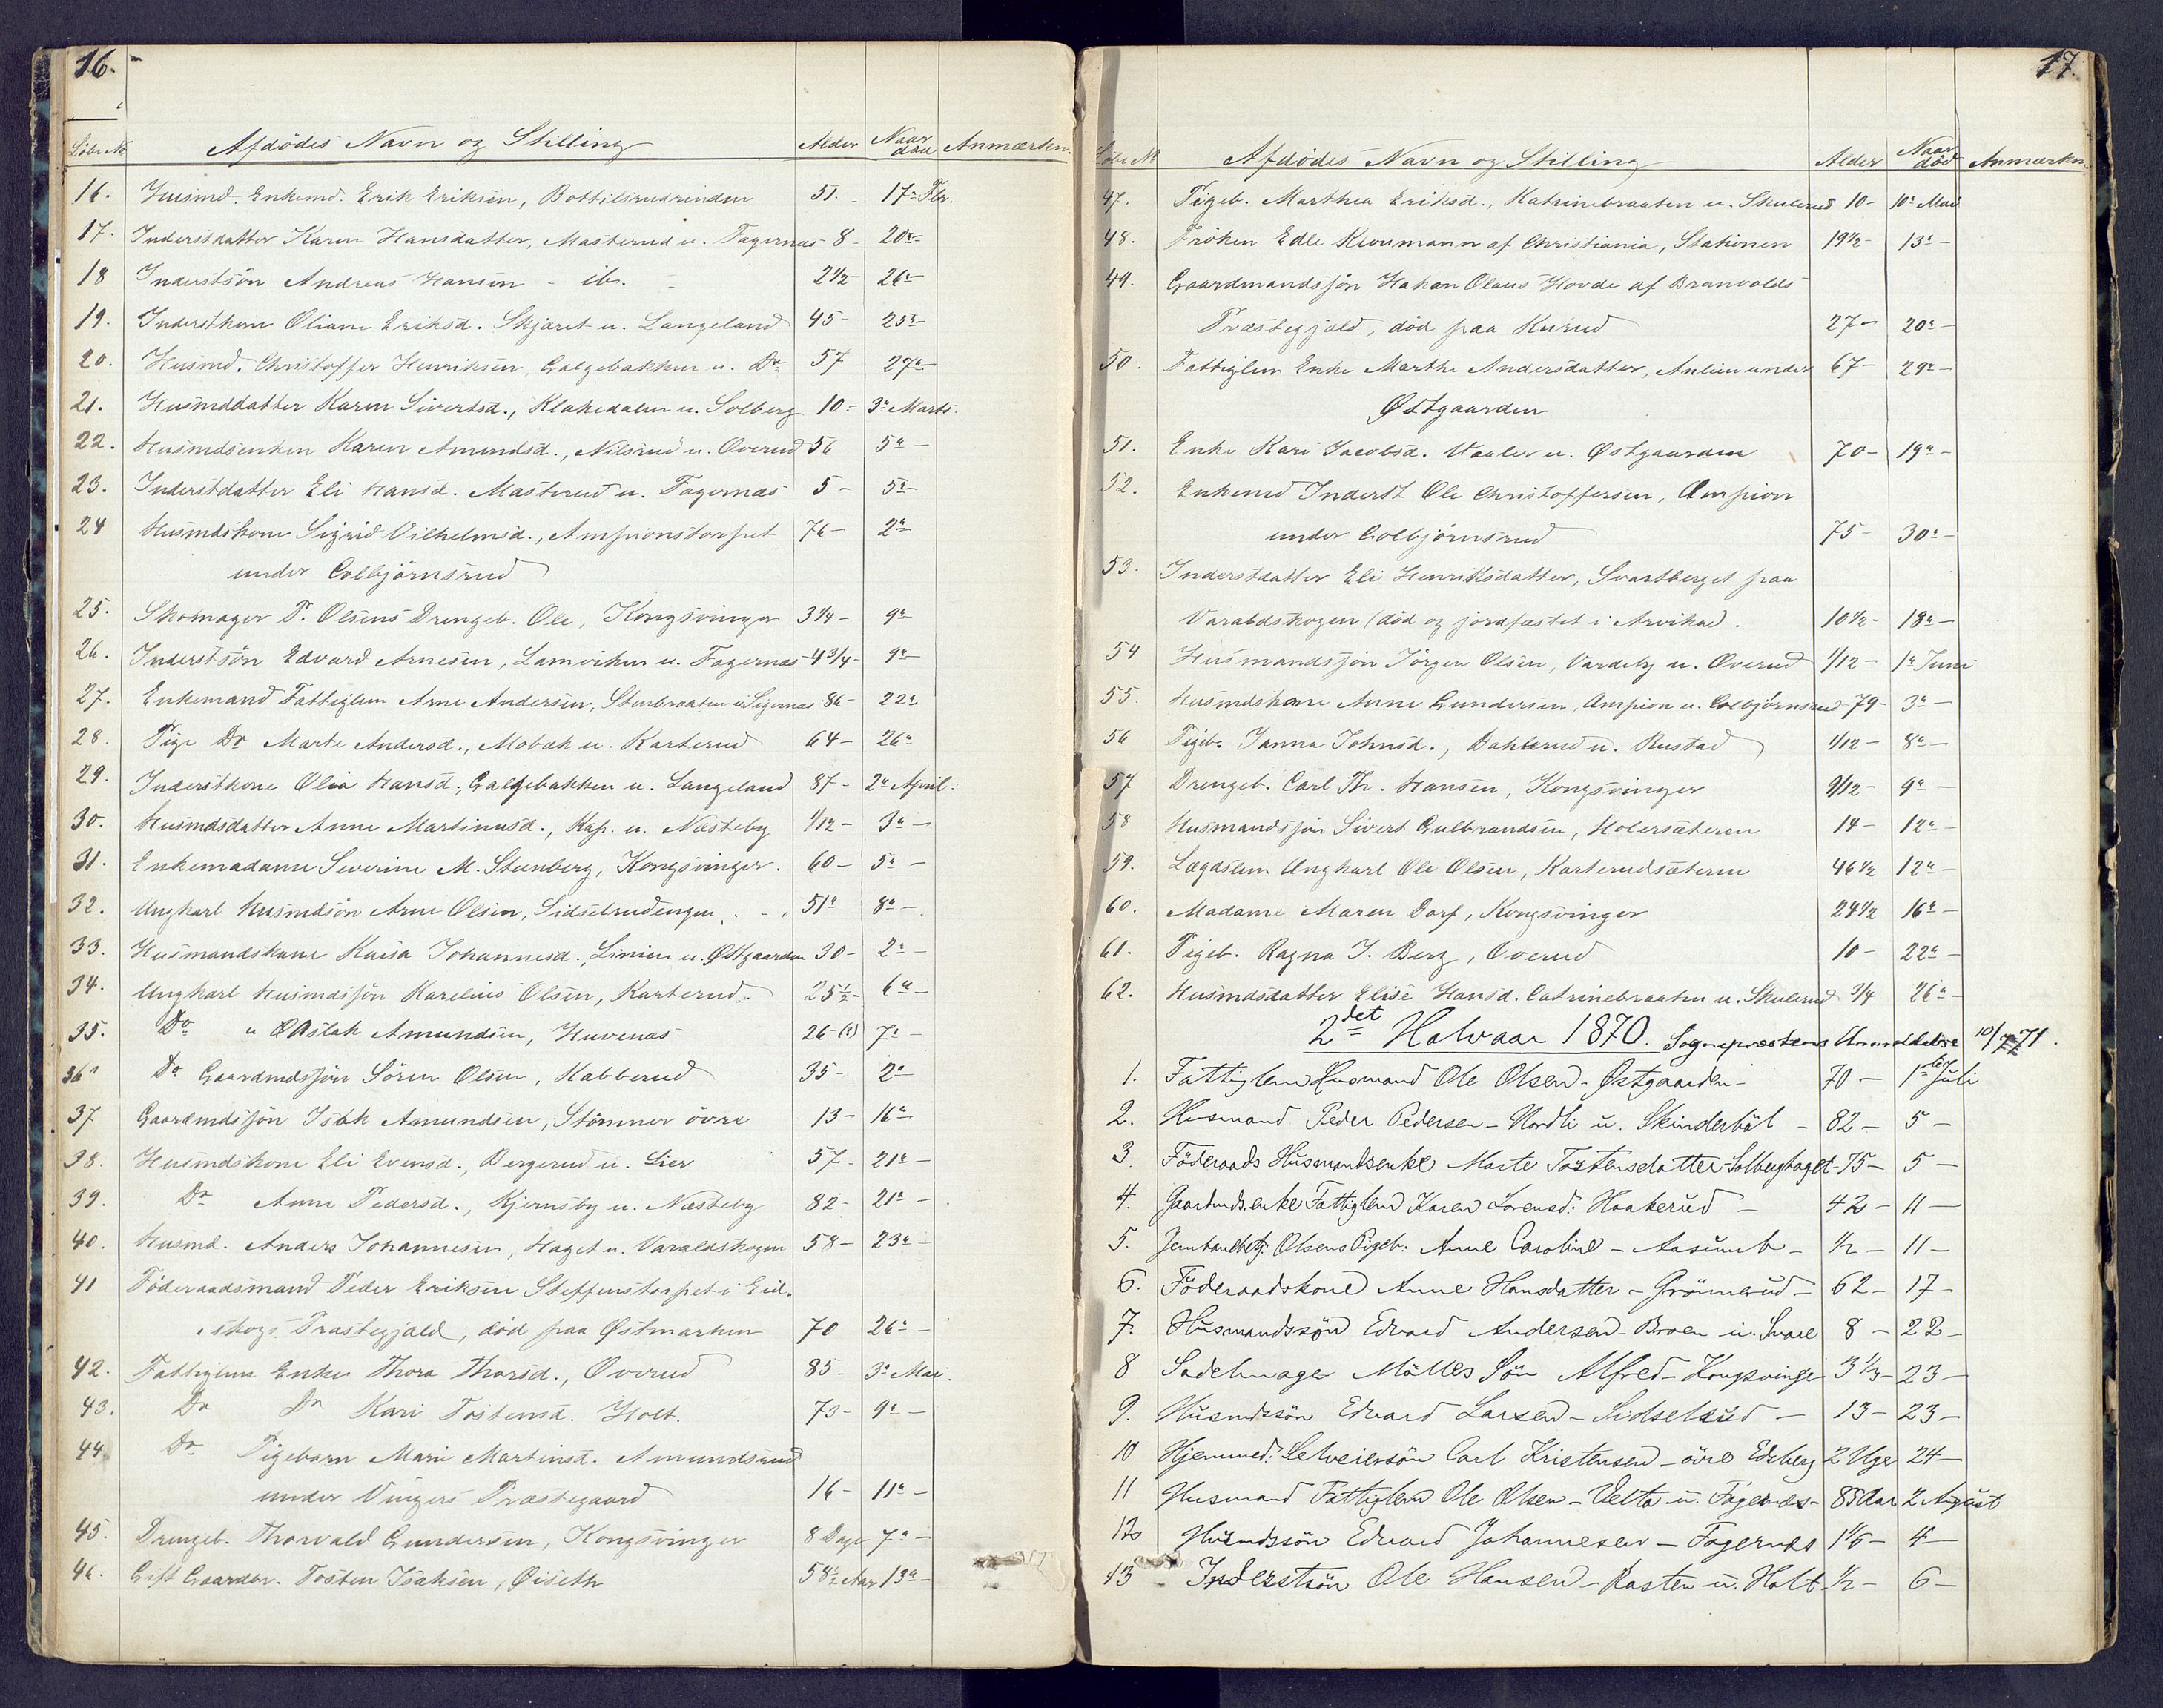 16.
Löbe No Afdödes Navn og Stilling Alder Naar död Anmærkn.
16. Husmd. Enkemd. Erik Eriksen, Bottilsrudrinden 51. - 17de Febr.
17. Inderstdatter Karen Hansdatter, Masterud u. Fagernæs 8 - 20de
18 Inderstsön Andreas Hansen - ib. - 2 1/2 - 26de
19. Inderstkone Oliane Eriksd. Skjæret u. Langeland 45 - 25de
20. Husmd. Christoffer Henriksen, Galgebakken u. Do 57 27de
21. Husmddatter Karen Sivertsd., Klakedalen u. Solberg 10 - 3de Marts.
22. Husmdsenken Karen Amundsd., Nilsrud u. Overud 56 5te -
23. Inderstdatter Eli Hansd. Masterud u. Fagernæs 5 - 5te
24 Husmdskone Sigrid Vilhelmsd., Ampionstorpet 76 - 2de
under Colbjörnsrud
25. Skomager P. Olsens Drengeb. Ole, Kongsvinger 3 1/4 - 9de
26. Inderstsön Edvard Arnesen, Lamviken u. Fagernæs 4 3/4 - 9de
27. Enkemand Fattiglem Arne Andersen, Stenbraaten u. Sigernæs 86 - 22de
28. Pige Do Marte Andersd., Mobæk u. Karterud 64 - 26de
29. Inderstkone Olea Hansd., Galgebakken u. Langeland 87 - 2den April.
30. Husmdsdatter Anne Martinusd., Kap. u. Næsteby 1/12 - 3de -
31. Enkemadame Severine M. Steenberg, Kongsvinger. 60 - 5te -
32. Ungkarl Husmdsön Arne Olsen, Sidselrudengen. - . 51 8de -
33. Husmandskone Kaisa Johannesd., Linien u. Østgaarden 30 - 2de -
34. Ungkarl Husmdsjön Karelius Olsen, Karterud. 25 1/2 - 6te -
35. Do " Aslak Amundsen, Huvenæs 26 - (?) 7de -
36 Do Gaardmdsjön Sören Olsen, Kabberud 35 - 2de
37 Gaardmdsjön Isak Amundsen, Strömner övre 13 - 16de
38. Husmdskone Eli Evensd., Bergerud u. Lier 57 - 21de -
39. Do Anne Pedersd., Kjernsby u. Næsteby 82 - 21de -
40. Husmd. Anders Johannesen, Haget u. Varaldskogen 58 - 23de -
41 Föderaadsmand Peder Eriksen Steffenstorpet i Eid-
skogs Præstegjæld, död paa Østmarken 70 26de -
42. Fattiglem Enke Thora Thorsd., Overud 85 - 3de Mai.
43. Do Do Kari Tostensd. Holt. 73 - 9de -
44. Do Pigebarn Mari Martinsd. Amundsrud
under Vingers Præstegaard 16 - 11de -
45. Drengeb. Thorvald Gundersen, Kongsvinger 8 Dage 7de -
46. Gift Gaardbr. Tosten Isaksen, Øiseth 58 1/2 Aar 13de -
17.
Löbe No Afdödes Navn og Stilling Alder Naar död Anmærkn.
47. Pigeb. Marthea Eriksd., Katrinebraaten u. Skulerud 10 - 10de Mai
48. Fröken Edle Krvumann af Christiania, Stationen 19 1/2 - 13de -
49. Gaardmandsjön Hakan Olaus Hovde af Branvolds
Præstegjæld, död paa Kurud 27 - 20de -
50. Fattiglem Enke Marthe Andersdatter, Anlien under 67 - 29de -
Østgaarden
51. Enke Kari Jacobsd. Vaaler u. Østgaarden 70 - 19de -
52. Enkemd Inderst Ole Christoffersen, Ampion
under Colbjörnsrud 75 - 30de -
53. Inderstdatter Eli Henriksdatter, Svartberget paa
Varaldskogen (död og jordfæstet i Arvika). 10 1/2 - 18de -
54 Husmandsjön Jörgen Olsen, Vardeby u. Overud 1/12 - 1ste Juni
55. Husmdskone Anne Gundersen, Ampion u. Colbjörnsrud 79 - 3de -
56 Pigeb. Janna Johnsd., Dahlerud u. Rustad 1/12 - 8de -
57 Drengeb. Carl Th. Hansen, Kongsvinger 9/12 - 9de -
58 Husmandsjön Sivert Gulbrandsen, Holersæteren 14 - 12de -
59. Lægdslem Ungkarl Ole Olsen, Karterudsæteren 46 1/2 12de -
60. Madame Maren Dorf, Kongsvinger 24 1/2 16de -
61. Pigeb. Ragna J. Berg, Overud 10 - 22de -
62. Husmdsdatter Elise Hansd. Catrinebraaten u. Skulerud 3/4 26de -
2det Halvaar 1870. Sognepræstens Anmeldelse 10/7 71.
1. Fattiglem Husmand Ole Olsen - Østgaarden - 70 - 1ste Juli
2. Husmand Peder Pedersen - Nordli u. Skinderböl - 82 - 5 -
3. Föderaads Husmandsenke Marte Tostensdatter Solberghaget - 75 - 5 -
4. Gaardmds.enke Fattiglem Karen Lorensd: Haakerud - 42 - 11 -
5. Jernbanebetj: Olsens Pigeb: Anne Caroline - Aasumb - 1/2 - 11 -
6. Föderaadskone Anne Hansdatter - Grönnerud - 62 - 17 -
7. Husmandssön Edvard Andersen - Broen u. Svare 8 - 22 -
8 Sadelmager Möllers Sön Alfred - Kongsvinger 3 1/3 - 23 -
9. Husmdssön Edvard Larsen - Sidselrud - 13 - 23 -
10 Hjemmed: Selveiersön Carl Kristensen - övre Edsberg 2 Uger 24 -
11 Husmand Fattiglem Ole Olsen - Velta u. Fagernæs - 85 Aar 2 August
12 Husmdssön Edvard Johannesen - Fagernæs 1 1/6 - 4 -
13 - Inderstsön Ole Hansen - Rasten u. Holt 1/2 - 6 -